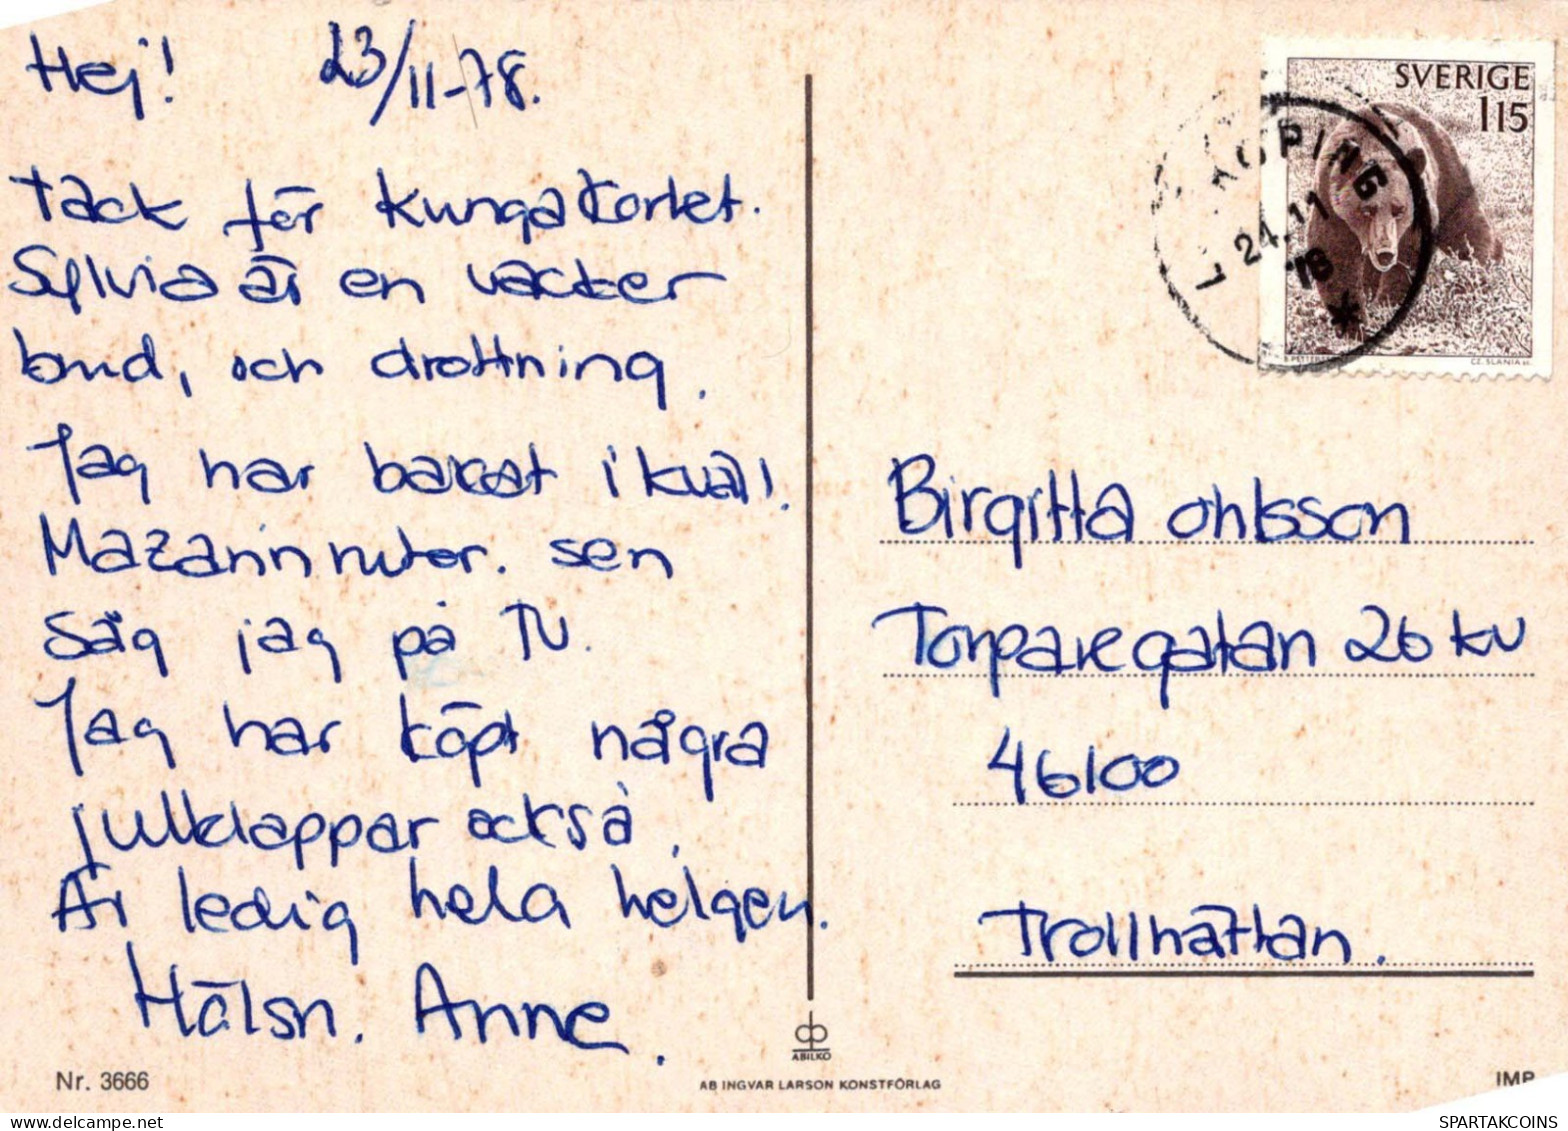 Hej! 23/11-78.
Tack för kungakortet.
Sylvia är en vacker
brud, och drottning.
Jag har bakat ikväll.
Mazarinrutor. sen
såg jag på TV.
Jag har köpt några
julklappar också.
Är ledig hela helgen.
Hälsn. Anne.
Nr. 3666
ABILKO
AB INGVAR LARSON KONSTFÖRLAG
SVERIGE
115
KÖPING
24.11
78
CZ. SLANIA sc.
Birgitta Ohlsson
Torpavegatan 26 kv
46100
Trollhättan.
IMP
SPARTAKCOINS